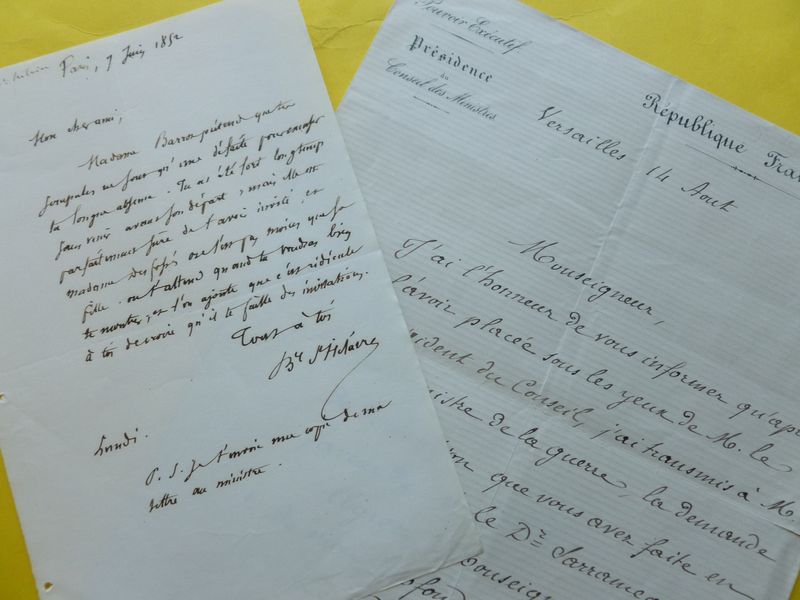 Paris, 7 Juin 1852
Mon cher ami,
Madame Barrot prétend que tes
scrupules ne sont qu'une défaite pour excuser
ta longue absence. Tu as été fort longtemps
sans venir avant son départ; mais elle est
parfaitement sûre de t'avoir invité, et
madame des fossés ne l'est pas moins que sa
fille. on t'attend quand tu voudras bien
te montrer; et l'on ajoute que c'est ridicule
à toi de croire qu'il te faille des invitations.
Tout à toi
Bt St hilaire
Lundi.
P. S. je t'envoie une copie de ma
lettre au ministre.
Pouvoir Exécutif
Présidence
du
Conseil des Ministres
République Fran
Versailles 14 Aout
Monseigneur,
J'ai l'honneur de vous informer qu'apr
l'avoir placée sous les yeux de M. le
ident du Conseil, j'ai transmis à M.
istre de la guerre, la demande
que vous avez faite en
le Dr Sarramea